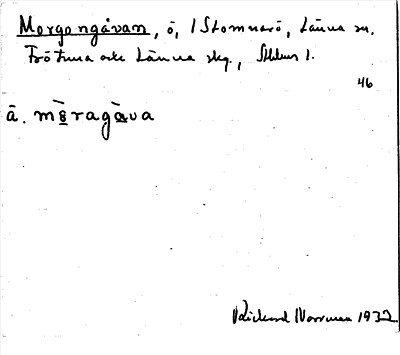 Morgongåvan, ö, 1 Stomnarö, Länna sn.
Frötuna och Länna skg., Sthlms l.
46
ā. mèragàva
Rickard Norrman 1932